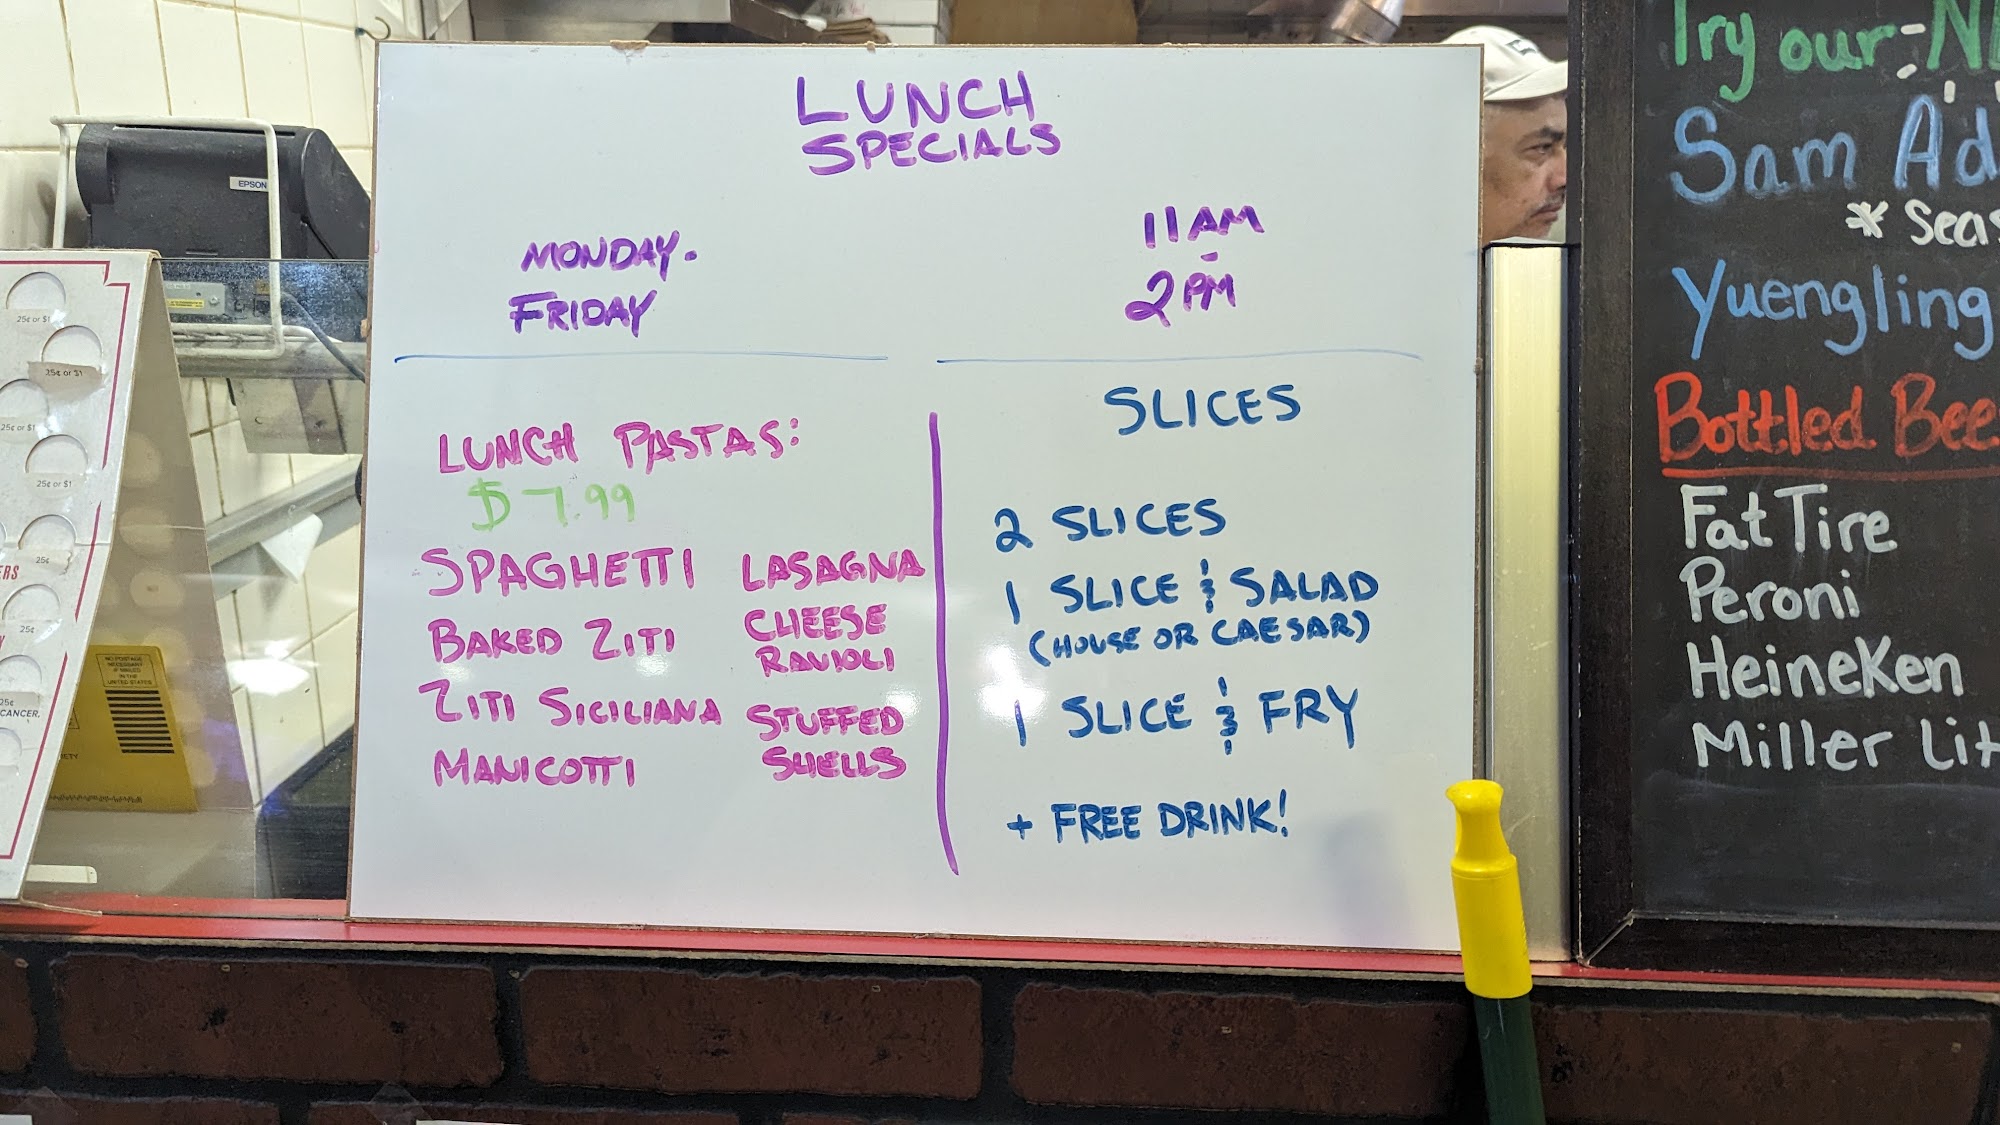 LUNCH
SPECIALS
MONDAY-
FRIDAY
11AM
-
2PM
LUNCH PASTAS:
$7.99
SPAGHETTI
BAKED ZITI
ZITI SICILIANA
MANICOTTI
LASAGNA
CHEESE
RAVIOLI
STUFFED
SHELLS
SLICES
2 SLICES
1 SLICE & SALAD
(HOUSE OR CAESAR)
1 SLICE & FRY
+ FREE DRINK!
Try our
Sam Ad
* Seas
Yuengling
Bottled Bee
Fat Tire
Peroni
Heineken
Miller Lit
EPSON
25¢ or $1
25¢ or $1
25¢ or $1
25¢ or $1
25¢
25¢
25¢
ERS
CANCER.
NO POSTAGE
NECESSARY
IF MAILED
IN THE
UNITED STATES